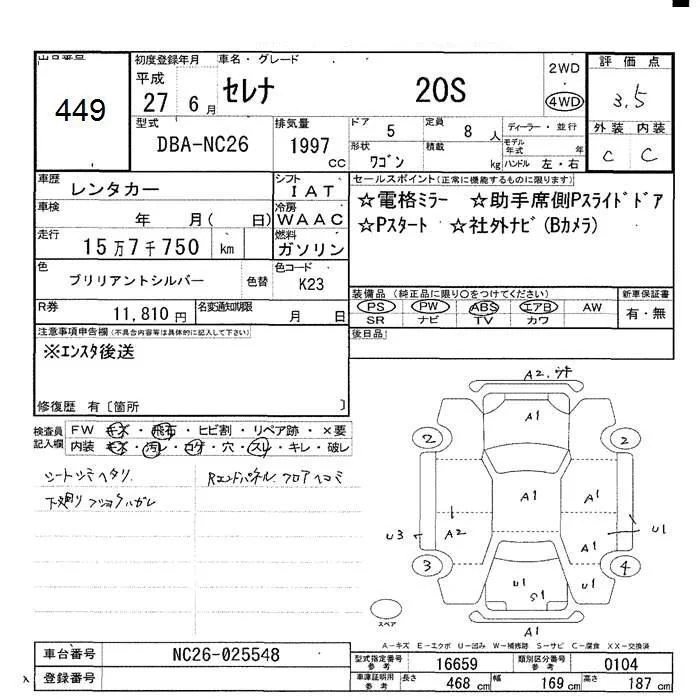 出品番号
449
初度登録年月
平成
27 6 月
車名・グレード
セレナ 20S
2WD
4WD
評価点
3.5
外装 内装
C C
型式
DBA-NC26
排気量
1997
cc
ドア 5
定員 8 人
形状 ワゴン
積載 kg
ディーラー・並行
モデル年式 年
ハンドル 左・右
車歴
レンタカー
シフト
IAT
車検
年 月( 日)
冷房
WAAC
走行
15万7千750 km
燃料
ガソリン
色
ブリリアントシルバー
色替
色コード
K23
R券
11,810円
名変通知期限
月 日
セールスポイント(正常に機能するものに限ります)
☆電格ミラー ☆助手席側Pスライドドア
☆Pスタート ☆社外ナビ(Bカメラ)
装備品(純正品に限り○をつけてください)
PS PW ABS エアB AW
SR ナビ TV カワ
新車保証書
有・無
後日品
注意事項申告欄(不具合内容等は具体的に記入して下さい)
※エンスタ後送
修復歴 有〔箇所 〕
検査員記入欄
FW キズ・飛石・ヒビ割・リペア跡・×要
内装 キズ・汚レ・コゲ・穴・スレ・キレ・破レ
シートシミヘタリ
Rエンドパネル、フロアヘコミ
下廻り
A2.
A1
2
2
A1
A1
U3
A2
A1
U1
3
4
U1
S1
U1
A1
スペア
A-キズ E-エクボ U-凹み W-補修跡 S-サビ C-腐食 XX-交換済
車台番号
NC26-025548
登録番号
型式指定番号 参考
16659
類別区分番号 参考
0104
車庫証明用 参考
長さ 468 cm
幅 169 cm
高さ 187 cm